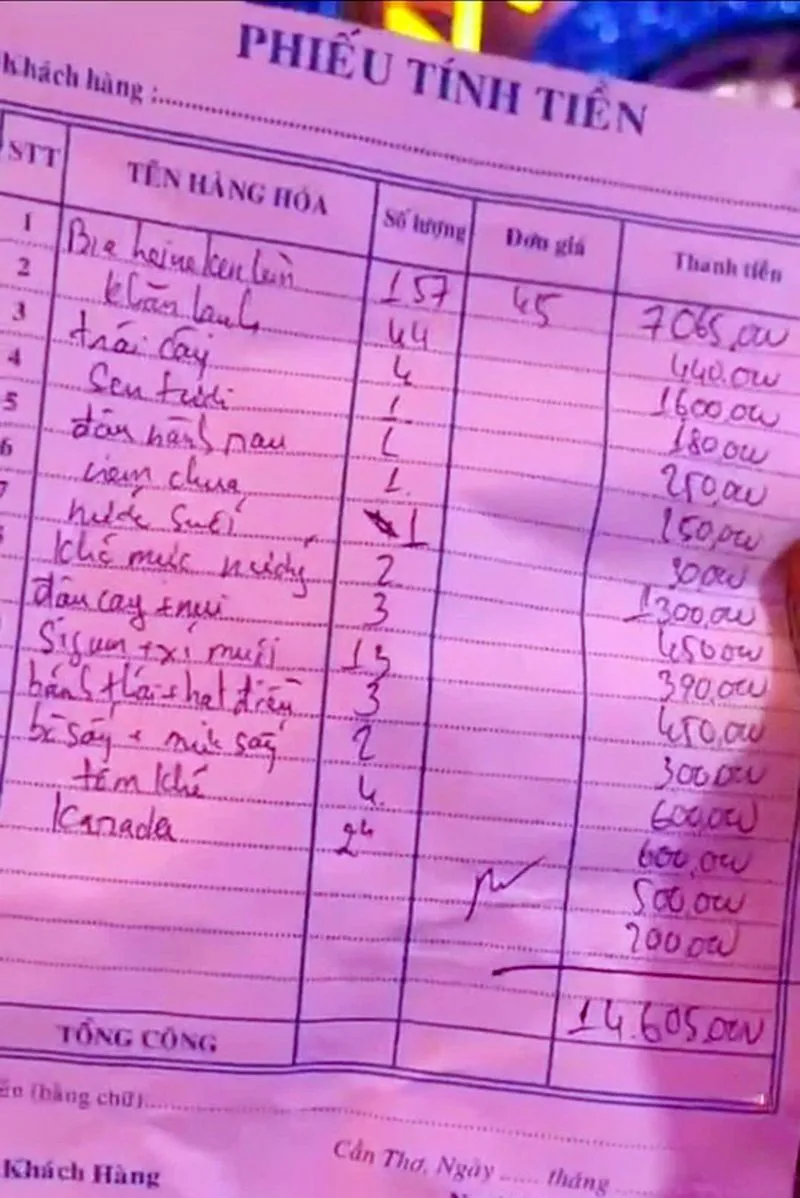 PHIẾU TÍNH TIỀN
Khách hàng :
STT TÊN HÀNG HÓA Số lượng Đơn giá Thành tiền
1 Bia heineken lùn 157 45 7065,000
2 khăn lạnh 44 440.000
3 trái cây 4 1600,000
4 Sen tươi 1 180.000
5 đậu hành nau 1 250,000
6 nem chua 1 150,000
7 nước suối 1 30,000
khô mực nướng 2 1300,000
đậu cay + nui 3 450.000
Sigum + xí muối 13 390,000
bánh thái + hạt điều 3 450,000
bò sấy + mực sấy 2 300.000
tôm khô 4 600,000
Kanada 24 600,000
500,000
200.000
14.605.000
TỔNG CỘNG
(bằng chữ)
Cần Thơ, Ngày ...... tháng ......
Khách Hàng